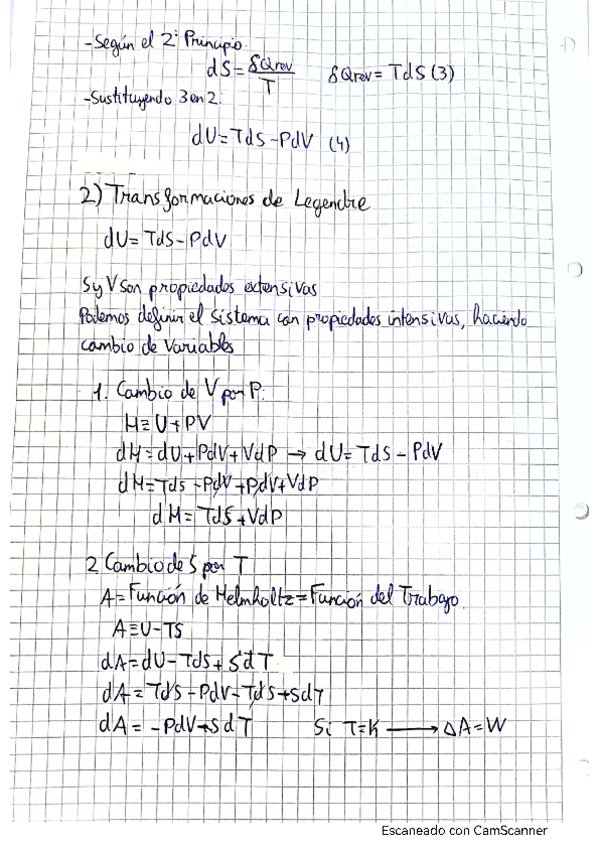 -Según el 2º Principio.
dS = δQrev / T    δQrev = TdS (3)
-Sustituyendo 3 en 2.
dU = TdS - PdV (4)
2) Transformaciones de Legendre
dU = TdS - PdV
S y V son propiedades extensivas
Podemos definir el sistema con propiedades intensivas, haciendo
cambio de variables
1. Cambio de V por P.
H ≡ U + PV
dH = dU + PdV + VdP → dU = TdS - PdV
dH = TdS - PdV + PdV + VdP
dH = TdS + VdP
2 Cambio de S por T
A = Función de Helmholtz = Función del Trabajo.
A ≡ U - TS
dA = dU - TdS + SdT
dA = TdS - PdV - TdS + SdT
dA = -PdV + SdT    Si T=K ⟶ ΔA = W
Escaneado con CamScanner